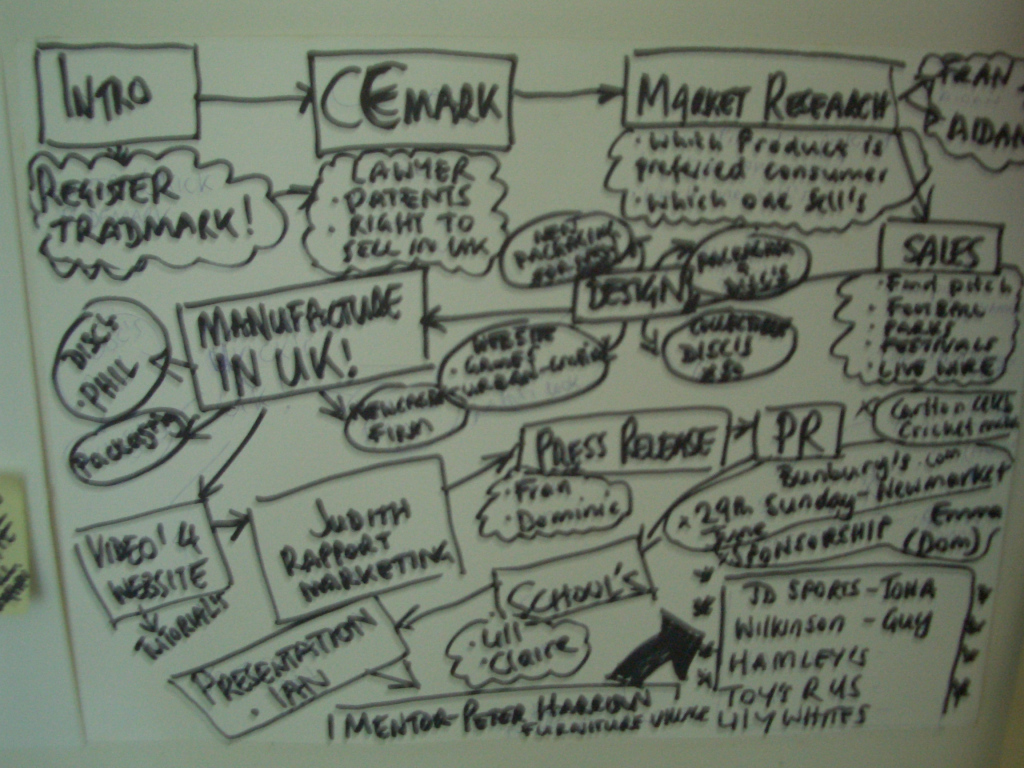 INTRO
REGISTER
TRADMARK!
CE MARK
LAWYER
• PATENTS
RIGHT TO
SELL IN UK
MARKET RESEARCH
• Which Product is
preferied consumer
• Which one Sell's
FRAN
AIDAN
SALES
• Find pitch
• FOOTBALL
• PARKS
• FESTIVALS
• LIVE WIRE
DESIGN
NEW
PACKAGING
COLLECTABLE
DISC'S
X50
WEBSITE
• GAMES
MANUFACTURE
IN UK!
DISC'S
• PHIL
PACKAGING
FINN
VIDEO'4
WEBSITE
TUTORIALS
JUDITH
RAPPORT
MARKETING
PRESS RELEASE
• Fran
• Dominic
PR
Carlton
Cricket
Bunbury's.com
x 29th Sunday - Newmarket
June
x SPONSORSHIP
Emma
(Dom)
SCHOOL'S
• Lill
• Claire
PRESENTATION
• IAN
1 MENTOR - PETER HARROW
FURNITURE
JD SPORTS - IONA
WILKINSON - GUY
HAMLEY'S
TOY'S R US
LILY WHITES